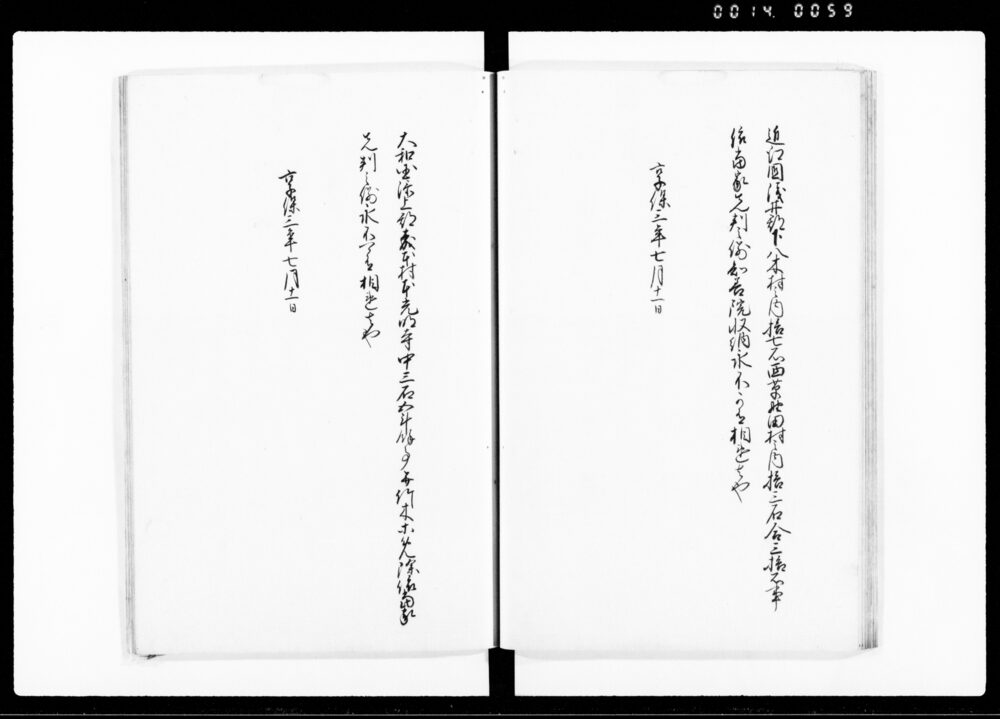 0014 0059
近江国浅井郡下八木村之内拾七石西草野田村之内拾三石合三拾石事
依当家先判之例知善院収納永不可有相違者也
享保三年七月十一日
大和国添上郡 村 光明寺中三石五斗余事并竹木等免除依当家
先判之例永不可有相違者也
享保三年七月十一日